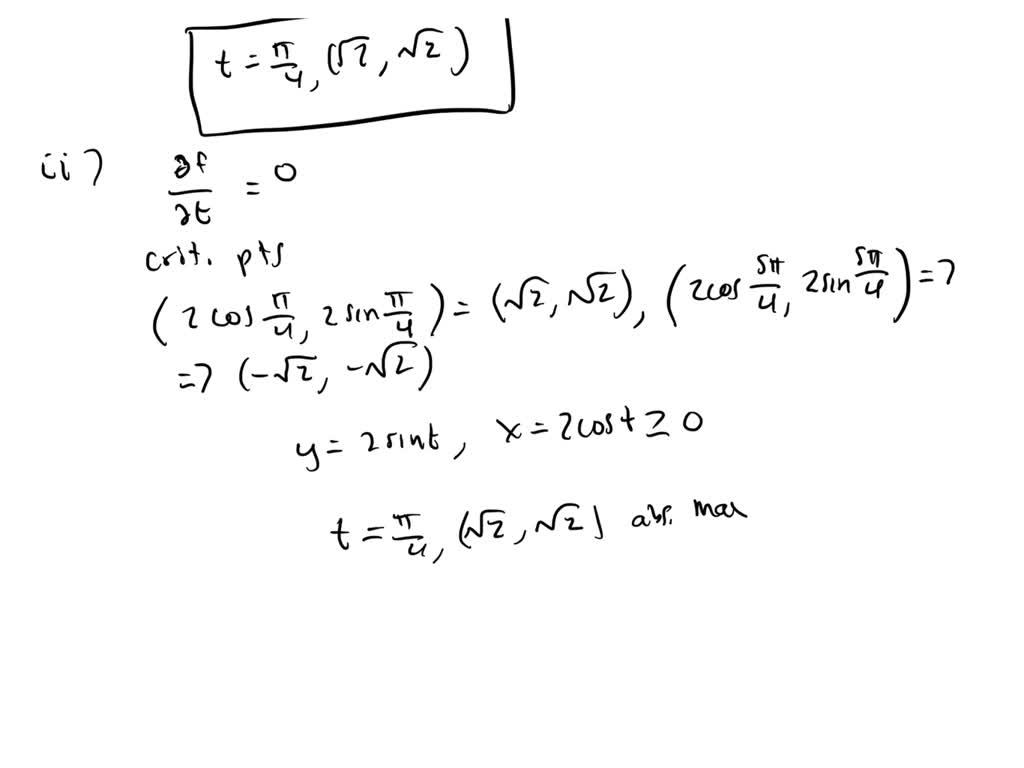 t = π/4, (√2, √2)
ii) ∂f/∂t = 0
crit. pts
(2 cos π/4, 2 sin π/4) = (√2, √2), (2 cos 5π/4, 2 sin 5π/4) =>
=> (-√2, -√2)
y = 2 sin t, x = 2 cos t ≥ 0
t = π/4, (√2, √2) abs. max